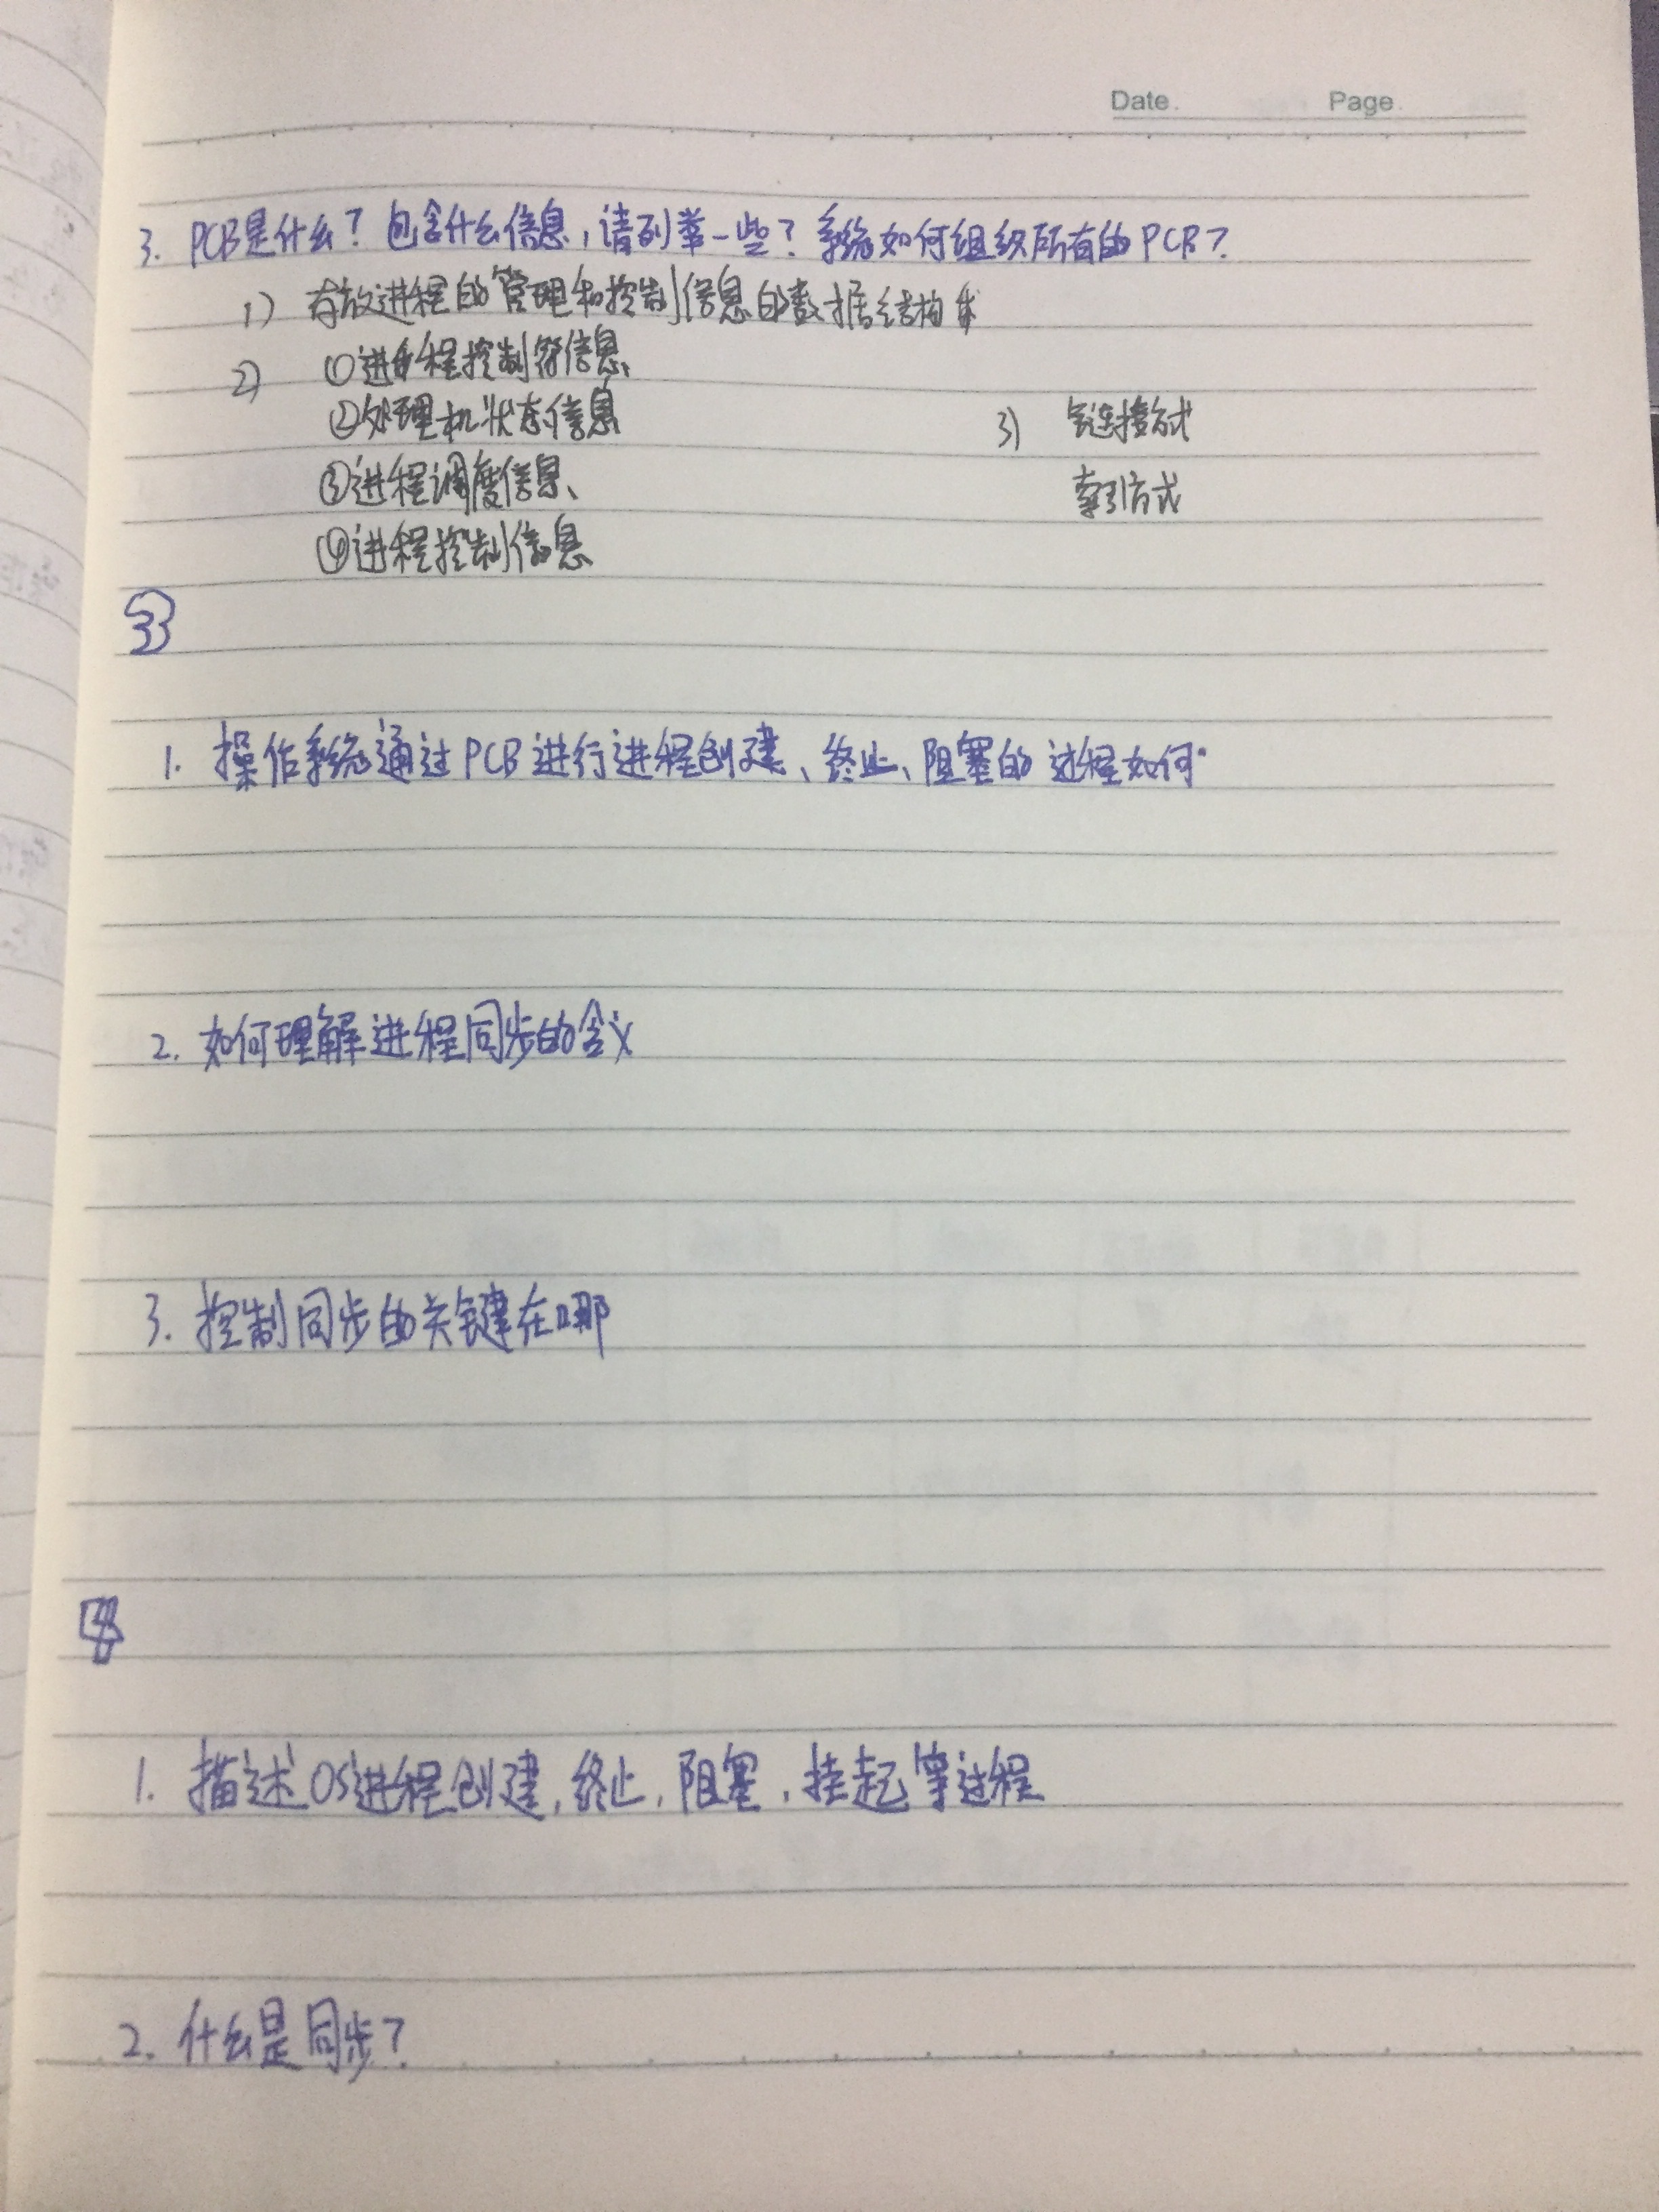 Date. Page.
3. PCB是什么？包含什么信息，请列举一些？系统如何组织所有的PCB？
1） 存放进程的管理和控制信息的数据结构
2） ①进程控制符信息、
②处理机状态信息
3） 链连接方式
③进程调度信息、
索引方式
④进程控制信息
3
1. 操作系统通过PCB进行进程创建、终止、阻塞的过程如何
2. 如何理解进程同步的含义
3. 控制同步的关键在哪
4
1. 描述OS进程创建,终止,阻塞,挂起等过程
2. 什么是同步？